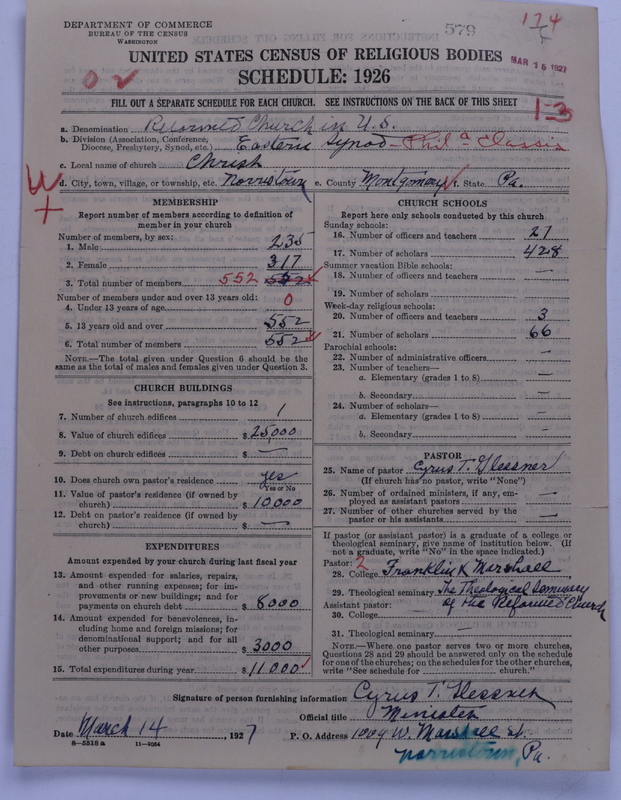 DEPARTMENT OF COMMERCE
BUREAU OF THE CENSUS
WASHINGTON
579
174
UNITED STATES CENSUS OF RELIGIOUS BODIES
MAR 15 1927
SCHEDULE: 1926
FILL OUT A SEPARATE SCHEDULE FOR EACH CHURCH. SEE INSTRUCTIONS ON THE BACK OF THIS SHEET
1-3
a. Denomination Reformed Church in U.S.
b. Division (Association, Conference, Diocese, Presbytery, Synod, etc.) Eastern Synod - Phila Classis
c. Local name of church Christ
d. City, town, village, or township, etc. Norristown e. County Montgomery f. State Pa.
MEMBERSHIP
Report number of members according to definition of member in your church
Number of members, by sex:
1. Male 235
2. Female 317
3. Total number of members 552 552
Number of members under and over 13 years old:
4. Under 13 years of age 0
5. 13 years old and over 552
6. Total number of members 552
NOTE.—The total given under Question 6 should be the same as the total of males and females given under Question 3.
CHURCH BUILDINGS
See instructions, paragraphs 10 to 12
7. Number of church edifices 1
8. Value of church edifices $ 25,000
9. Debt on church edifices $ —
10. Does church own pastor's residence yes
Yes or No
11. Value of pastor's residence (if owned by church) $ 10,000
12. Debt on pastor's residence (if owned by church) $ —
EXPENDITURES
Amount expended by your church during last fiscal year
13. Amount expended for salaries, repairs, and other running expenses; for improvements or new buildings; and for payments on church debt $ 8000
14. Amount expended for benevolences, including home and foreign missions; for denominational support; and for all other purposes $ 3000
15. Total expenditures during year $ 11000
CHURCH SCHOOLS
Report here only schools conducted by this church
Sunday schools:
16. Number of officers and teachers 27
17. Number of scholars 428
Summer vacation Bible schools:
18. Number of officers and teachers —
19. Number of scholars —
Week-day religious schools:
20. Number of officers and teachers 3
21. Number of scholars 66
Parochial schools:
22. Number of administrative officers —
23. Number of teachers—
a. Elementary (grades 1 to 8) —
b. Secondary —
24. Number of scholars—
a. Elementary (grades 1 to 8) —
b. Secondary —
PASTOR
25. Name of pastor Cyrus T. Glessner
(If church has no pastor, write "None")
26. Number of ordained ministers, if any, employed as assistant pastors —
27. Number of other churches served by the pastor or his assistants —
If pastor (or assistant pastor) is a graduate of a college or theological seminary, give name of institution below. (If not a graduate, write "No" in the space indicated.)
Pastor: 2
28. College Franklin & Marshall
29. Theological seminary The Theological Seminary of the Reformed Church
Assistant pastor:
30. College —
31. Theological seminary —
NOTE.—Where one pastor serves two or more churches, Questions 28 and 29 should be answered only on the schedule for one of the churches; on the schedules for the other churches, write "See schedule for ........ church."
Signature of person furnishing information Cyrus T. Glessner
Official title Minister
Date March 14, 1927 P. O. Address 1009 W. Marshall St.
8-5518 a 11-9054 Norristown, Pa.